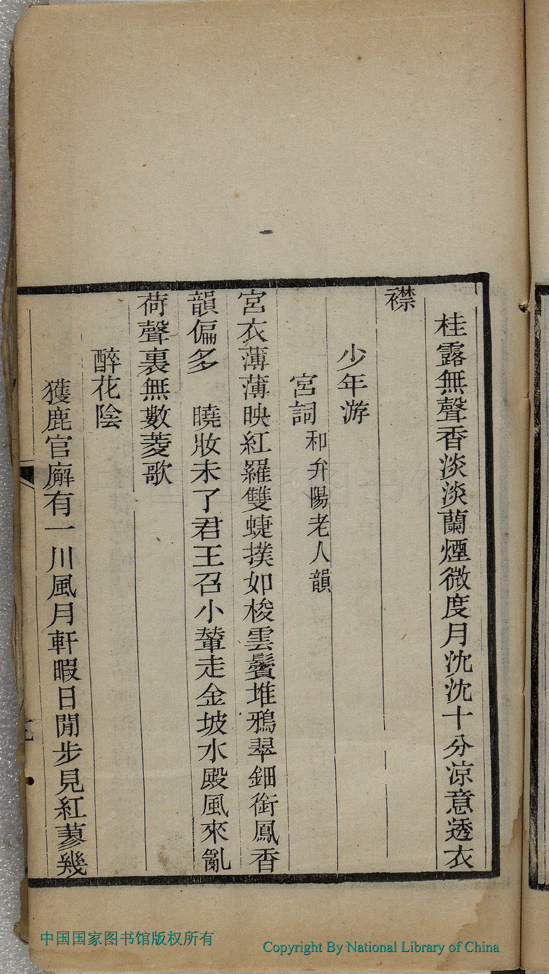 桂露無聲香淡淡蘭煙微度月沈沈十分涼意透衣
襟
少年游
宮詞和弁陽老人韻
宮衣薄薄映紅羅雙蜨撲如梭雲鬢堆鴉翠鈿銜鳳香
韻偏多　曉妝未了君王召小輦走金坡水殿風來亂
荷聲裏無數菱歌
醉花陰
獲鹿官廨有一川風月軒暇日閒步見紅蓼幾
中国国家图书馆版权所有
Copyright By National Library of China